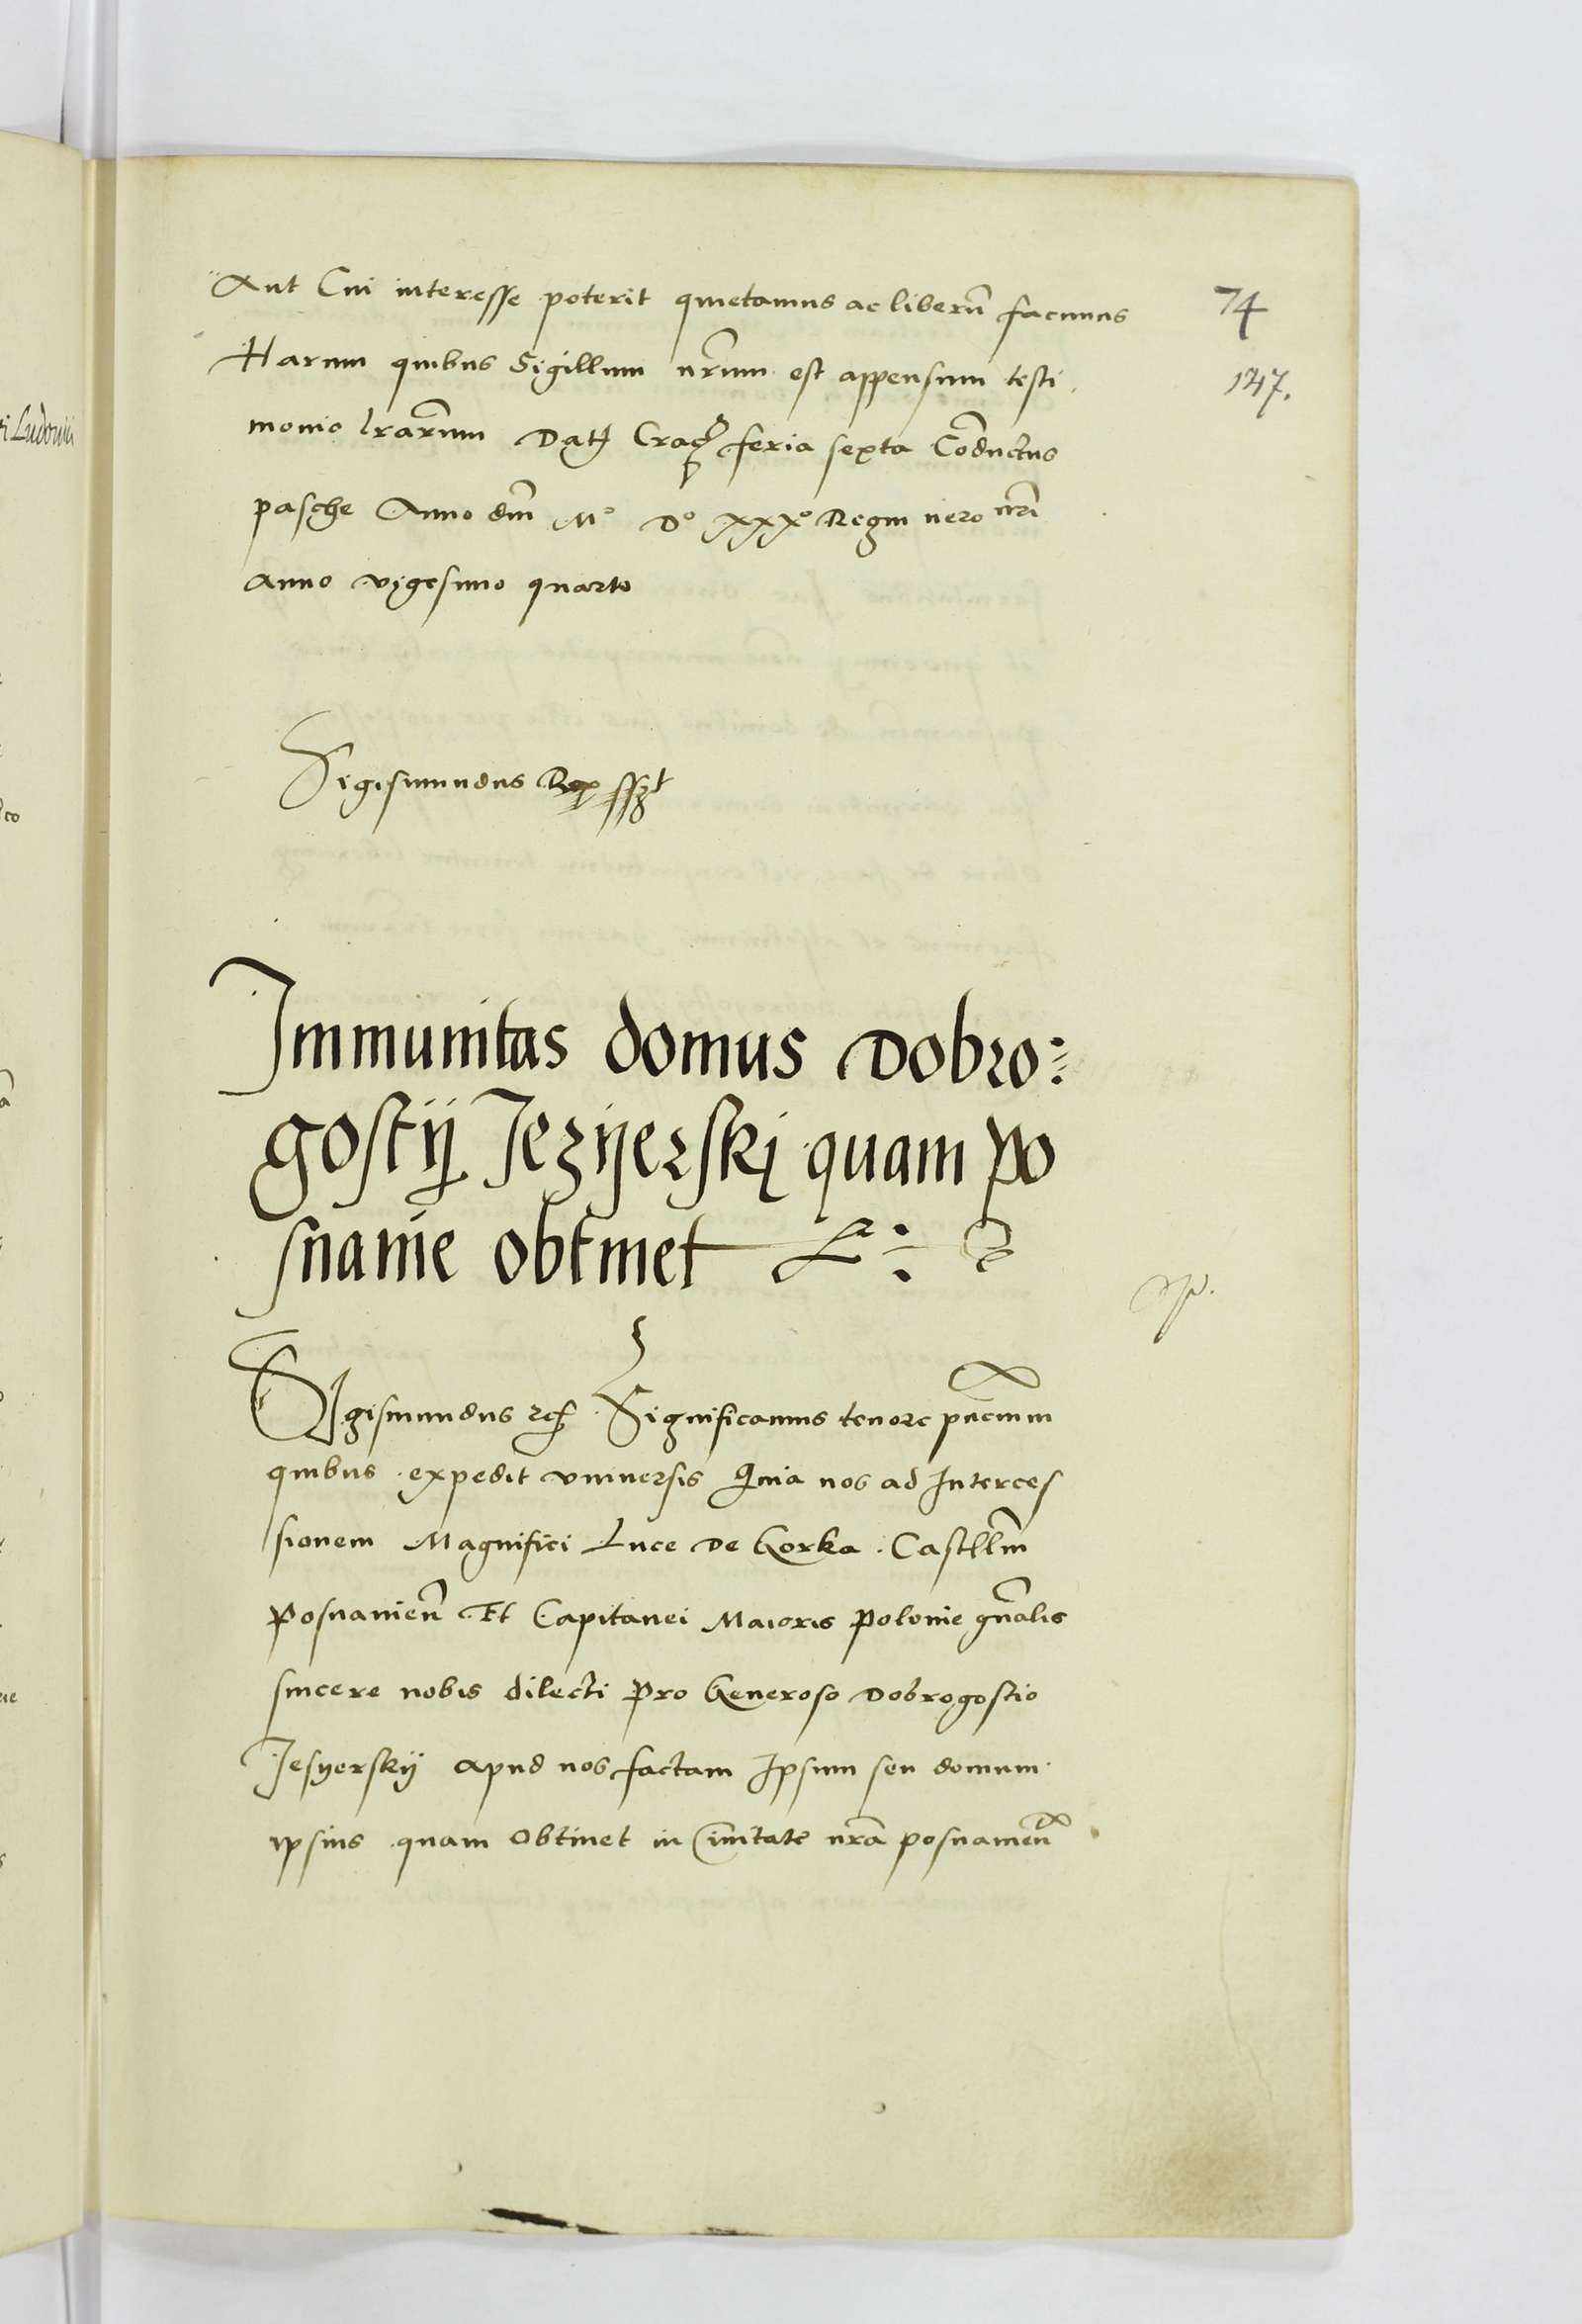 Aut Cui interesse poterit quietamus ac liberũ facimus
74
Harum quibus Sigillum nr̃um est appensum testi
147.
monio lrarũm Dat Crac feria sexta Cõductus
pasche Anno dñi M° D° xxx° Regni vero nr̃i
anno vigesimo quarto
Sigismundus Rex sszt
Immunitas domus Dobro:
gostij Jezyerskj quam po
snanie obtinet
Sigismundus rex Significamus tenore pñcium
quibus expedit vniuersis Quia nos ad Interces
sionem Magnifici Luce de Gorka Castllñi
Posnanieñ Et Capitanei Maioris Polonie gñalis
sincere nobis dilecti Pro Generoso Dobrogostio
Jesyerskij apud nos factam Ipsum seu domum
ipsius quam Obtinet in Ciuitate nrã posnanieñ